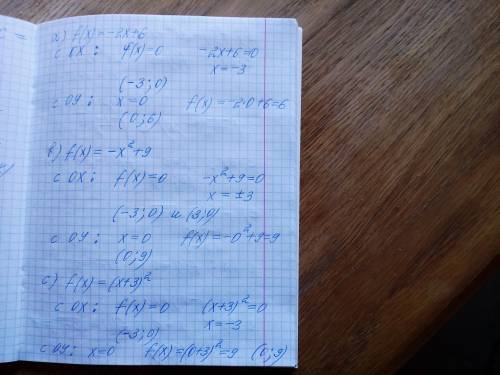 a) f(x)=-2x+6
с OX: f(x)=0 -2x+6=0
x=-3
(-3;0)
с OY: x=0 f(x)=-2·0+6=6
(0;6)
b) f(x)=-x²+9
с OX: f(x)=0 -x²+9=0
x=±3
(-3;0) и (3;0)
с OY: x=0 f(x)=-0²+9=9
(0;9)
c) f(x)=(x+3)²
с OX: f(x)=0 (x+3)²=0
x=-3
(-3;0)
с OY: x=0 f(x)=(0+3)²=9 (0;9)